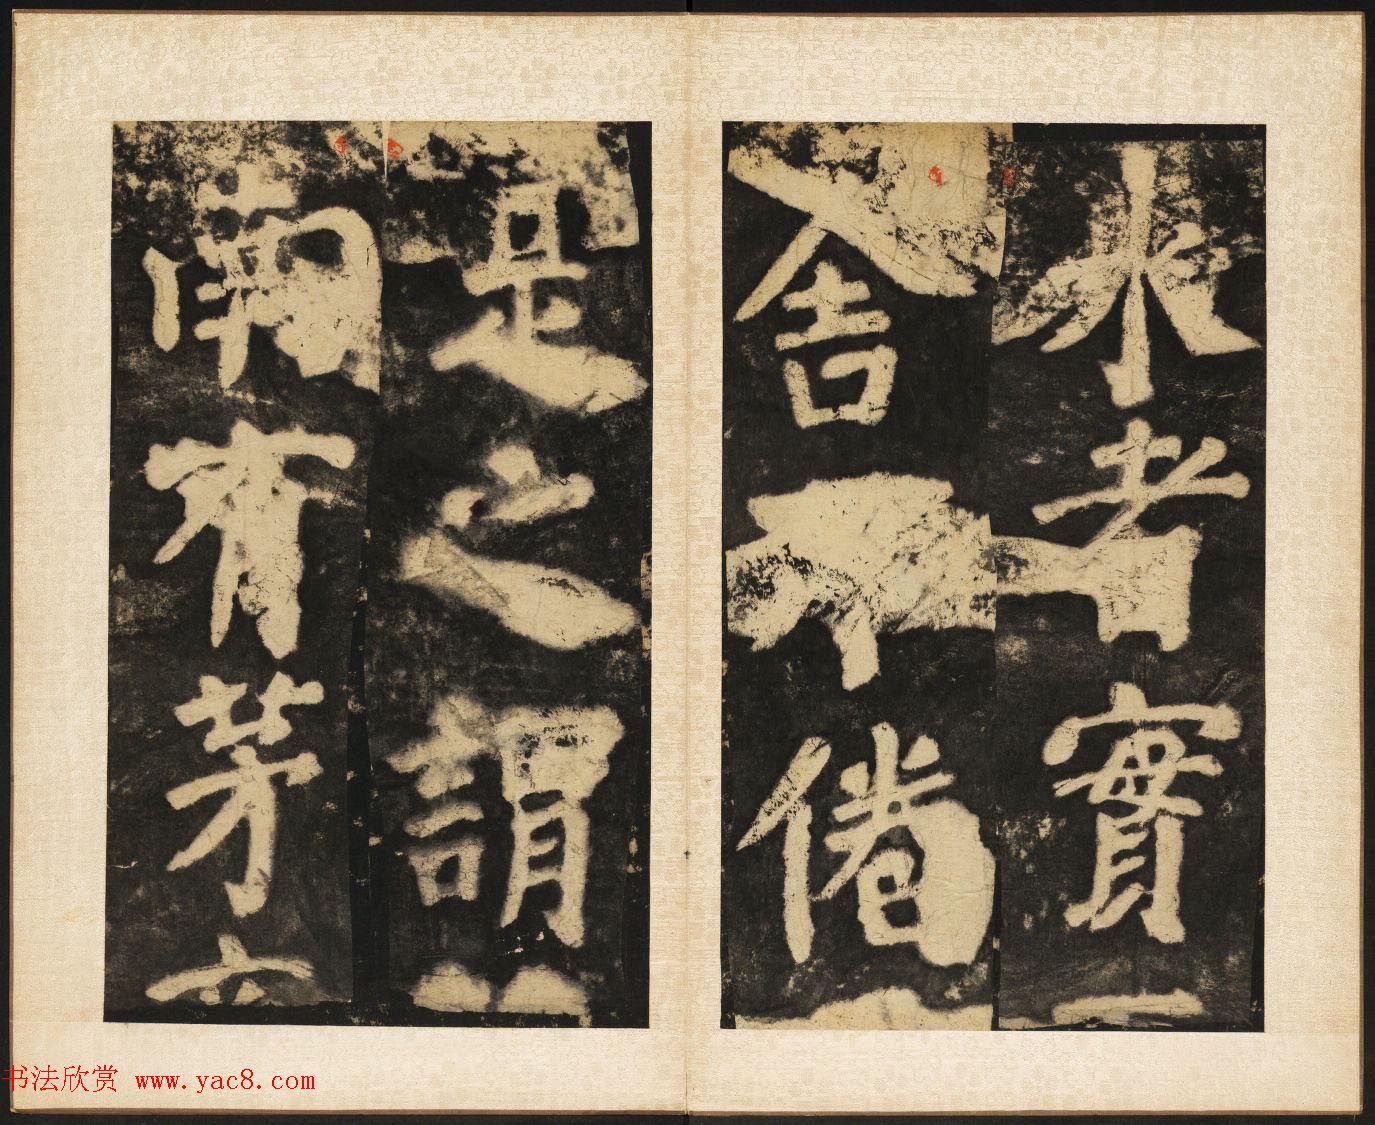 水者實
舍不倦
是之謂
南有茅
书法欣赏 www.yac8.com